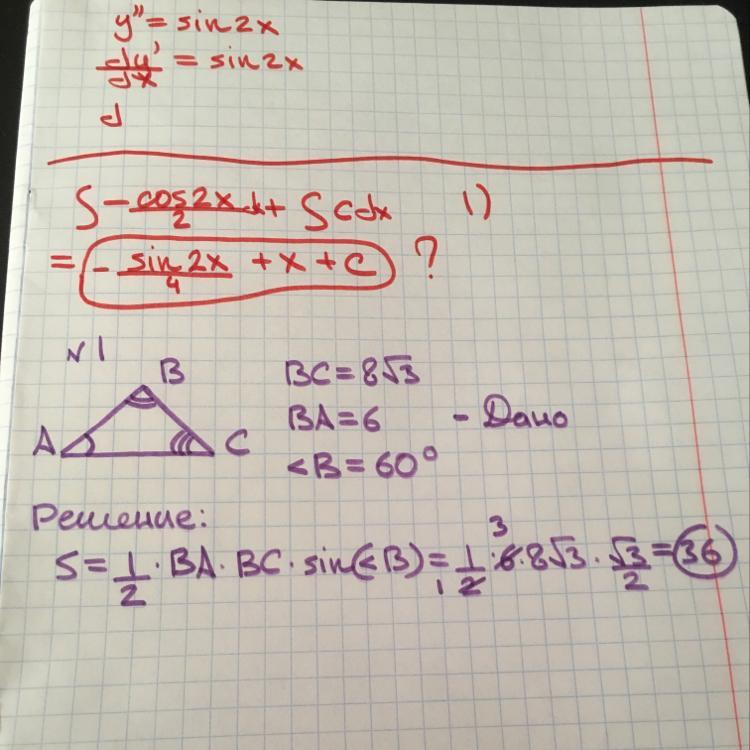 y'' = sin2x
dy'/dx = sin2x
d
∫ -cos2x/2 dx + ∫ c dx 1)
= - sin2x/4 + x + C ?
N1
B
A
C
BC = 8√3
BA = 6 - Дано
<B = 60°
Решение:
S = 1/2 · BA · BC · sin(<B) = 1/2 · 6 · 8√3 · √3/2 = 36
1 3